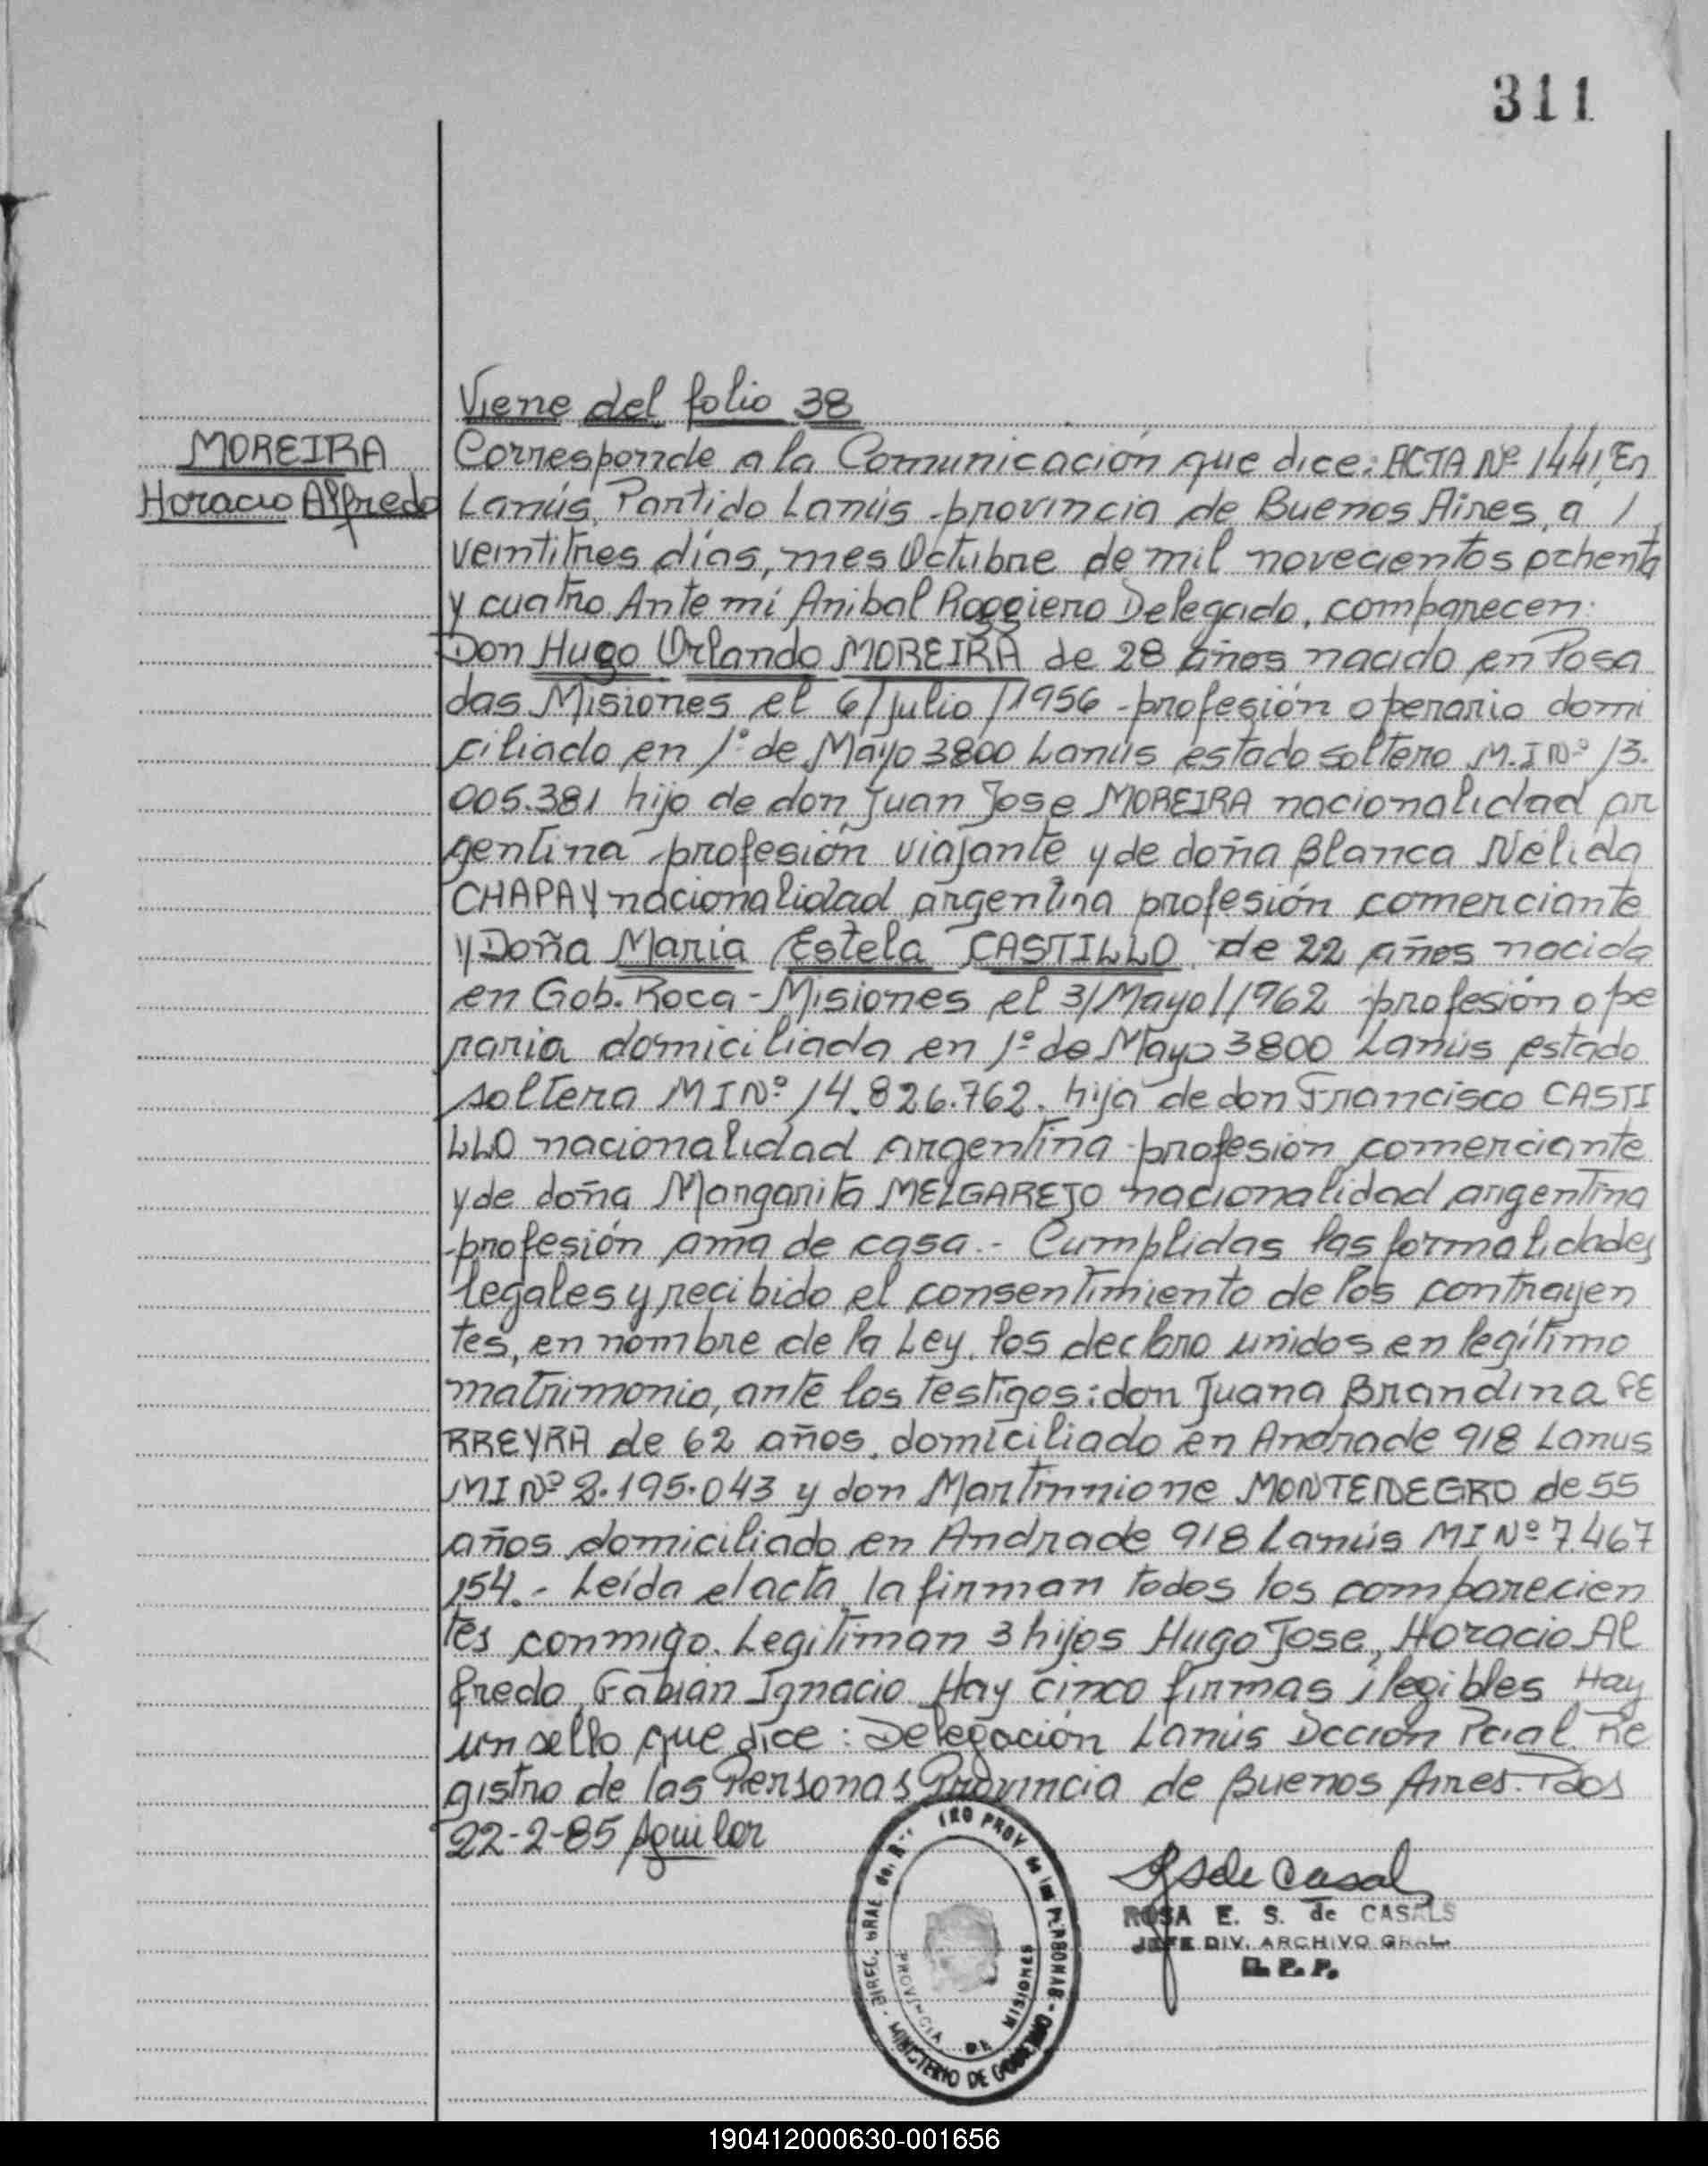 311
Viene del folio 38
MOREIRA
Horacio Alfredo
Corresponde a la Comunicación que dice: ACTA Nº 1441, En
Lanús, Partido Lanús provincia de Buenos Aires, a /
veintitres días, mes Octubre de mil novecientos ochenta
y cuatro Ante mí Anibal Roggiero Delegado, comparecen:
Don Hugo Orlando MOREIRA de 28 años nacido en Posa
das Misiones el 6/julio/1956 profesión operario domi
ciliado en 1º de Mayo 3800 Lanús estado soltero M.I Nº 13.
005.381 hijo de don Juan Jose MOREIRA nacionalidad ar
gentina profesión viajante y de doña Blanca Nélida
CHAPAY nacionalidad argentina profesión comerciante
y Doña Maria Estela CASTILLO de 22 años nacida
en Gob. Roca - Misiones el 31/Mayo/1962 profesión ope
raria domiciliada en 1º de Mayo 3800 Lanús estado
soltera MI Nº 14.826.762. hija de don Francisco CASTI
LLO nacionalidad argentina profesión comerciante
y de doña Margarita MELGAREJO nacionalidad argentina
profesión ama de casa.- Cumplidas las formalidades
legales y recibido el consentimiento de los contrayen
tes, en nombre de la Ley, los declaro unidos en legítimo
matrimonio, ante los testigos: don Juana Brandina FE
RREYRA de 62 años, domiciliado en Andrade 918 Lanus
MI Nº 2.195.043 y don Martinnione MONTENEGRO de 55
años domiciliado en Andrade 918 Lanús MI Nº 7.467
154.- Leída el acta, la firman todos los comparecien
tes conmigo. Legitiman 3 hijos Hugo Jose, Horacio Al
fredo, Fabián Ignacio Hay cinco firmas ilegibles Hay
un sello que dice: Delegación Lanús Dcción Pcial Re
gistro de las Personas Provincia de Buenos Aires. Pdos
22-2-85 Aguilar
DIREC. GRAL del PROV de las PERSONAS - MINISTERIO DE GOBIERNO
PROVINCIA DE MISIONES
ROSA E. S. de CASALS
JEFE DIV. ARCHIVO GRAL.
R. P. P.
190412000630-001656